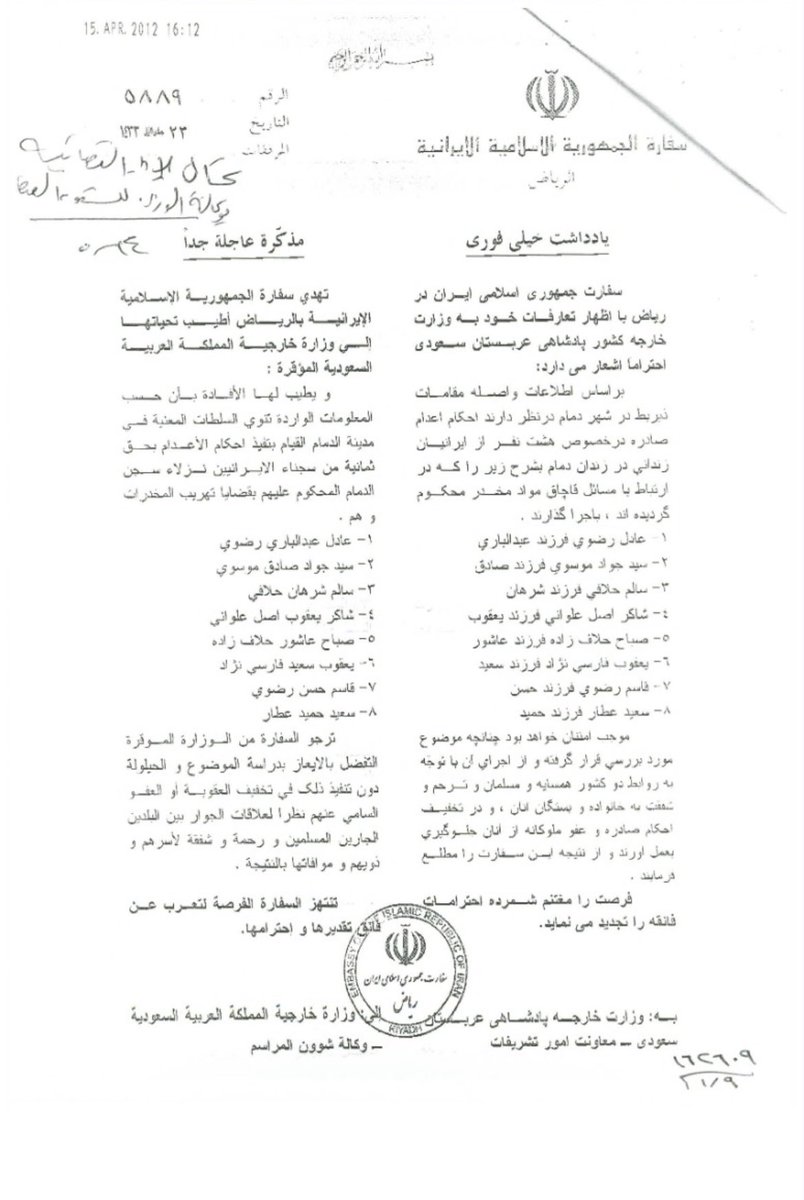 15. APR. 2012 16:12
الرقم ٥٨٨٩
التاريخ ٢٣ ١٤٣٣
المرفقات
سفارة الجمهورية الاسلامية الايرانية
الرياض
یادداشت خیلی فوری
سفارت جمهوری اسلامی ایران در
ریاض با اظهار تعارفات خود به وزارت
خارجه کشور پادشاهی عربستان سعودی
احتراما اشعار می دارد:
براساس اطلاعات واصله مقامات
ذیربط در شهر دمام درنظر دارند احکام اعدام
صادره درخصوص هشت نفر از ایرانیان
زندانی در زندان دمام بشرح زیر را که در
ارتباط با مسائل قاچاق مواد مخدر محکوم
گردیده اند ، باجرا گذارند .
١- عادل رضوي فرزند عبدالباري
٢- سید جواد موسوي فرزند صادق
٣- سالم حلافي فرزند شرهان
٤- شاکر اصل علواني فرزند یعقوب
٥- صباح حلاف زاده فرزند عاشور
٦- یعقوب فارسي نژاد فرزند سعید
٧- قاسم رضوي فرزند حسن
٨- سعید عطار فرزند حمید
موجب امتنان خواهد بود چنانچه موضوع
مورد بررسي قرار گرفته و از اجراي آن با توجه
به روابط دو کشور همسایه و مسلمان و ترحم و
شفقت به خانواده و بستگان آنان ، و در تخفیف
احکام صادره و عفو ملوکانه از آنان جلوگیري
بعمل آورند و از نتیجه این سفارت را مطلع
فرمایند .
فرصت را مغتنم شمرده احترامات
فائقه را تجدید می نماید.
به: وزارت خارجه پادشاهی عربستان
سعودی – معاونت امور تشریفات
مذكّرة عاجلة جداً
تهدي سفارة الجمهورية الإسلامية
الإيرانية بالرياض أطيب تحياتها
إلى وزارة خارجية المملكة العربية
السعودية الموّقرة :
و يطيب لها الأفادة بأن حسب
المعلومات الواردة تنوي السلطات المعنية في
مدينة الدمام القيام بتنفيذ احكام الأعدام بحق
ثمانية من سجناء الايرانيين نزلاء سجن
الدمام المحكوم عليهم بقضايا تهريب المخدرات
و هم .
١- عادل عبدالباري رضوي
٢- سيد جواد صادق موسوي
٣- سالم شرهان حلافي
٤- شاكر يعقوب اصل علواني
٥- صباح عاشور حلاف زاده
٦- يعقوب سعيد فارسي نژاد
٧- قاسم حسن رضوي
٨- سعيد حميد عطار
ترجو السفارة من الوزارة الموقرة
التفضل بالايعاز بدراسة الموضوع و الحيلولة
دون تنفيذ ذلك في تخفيف العقوبة أو العفو
السامي عنهم نظرا لعلاقات الجوار بين البلدين
الجارين المسلمين و رحمة و شفقة لأسرهم و
ذويهم و موافاتها بالنتيجة .
تنتهز السفارة الفرصة لتعرب عن
فائق تقديرها و احترامها.
إلى: وزارة خارجية المملكة العربية السعودية
– وكالة شوون المراسم
EMBASSY OF THE ISLAMIC REPUBLIC OF IRAN
سفارت جمهوری اسلامی ایران
ریاض
RIYADH